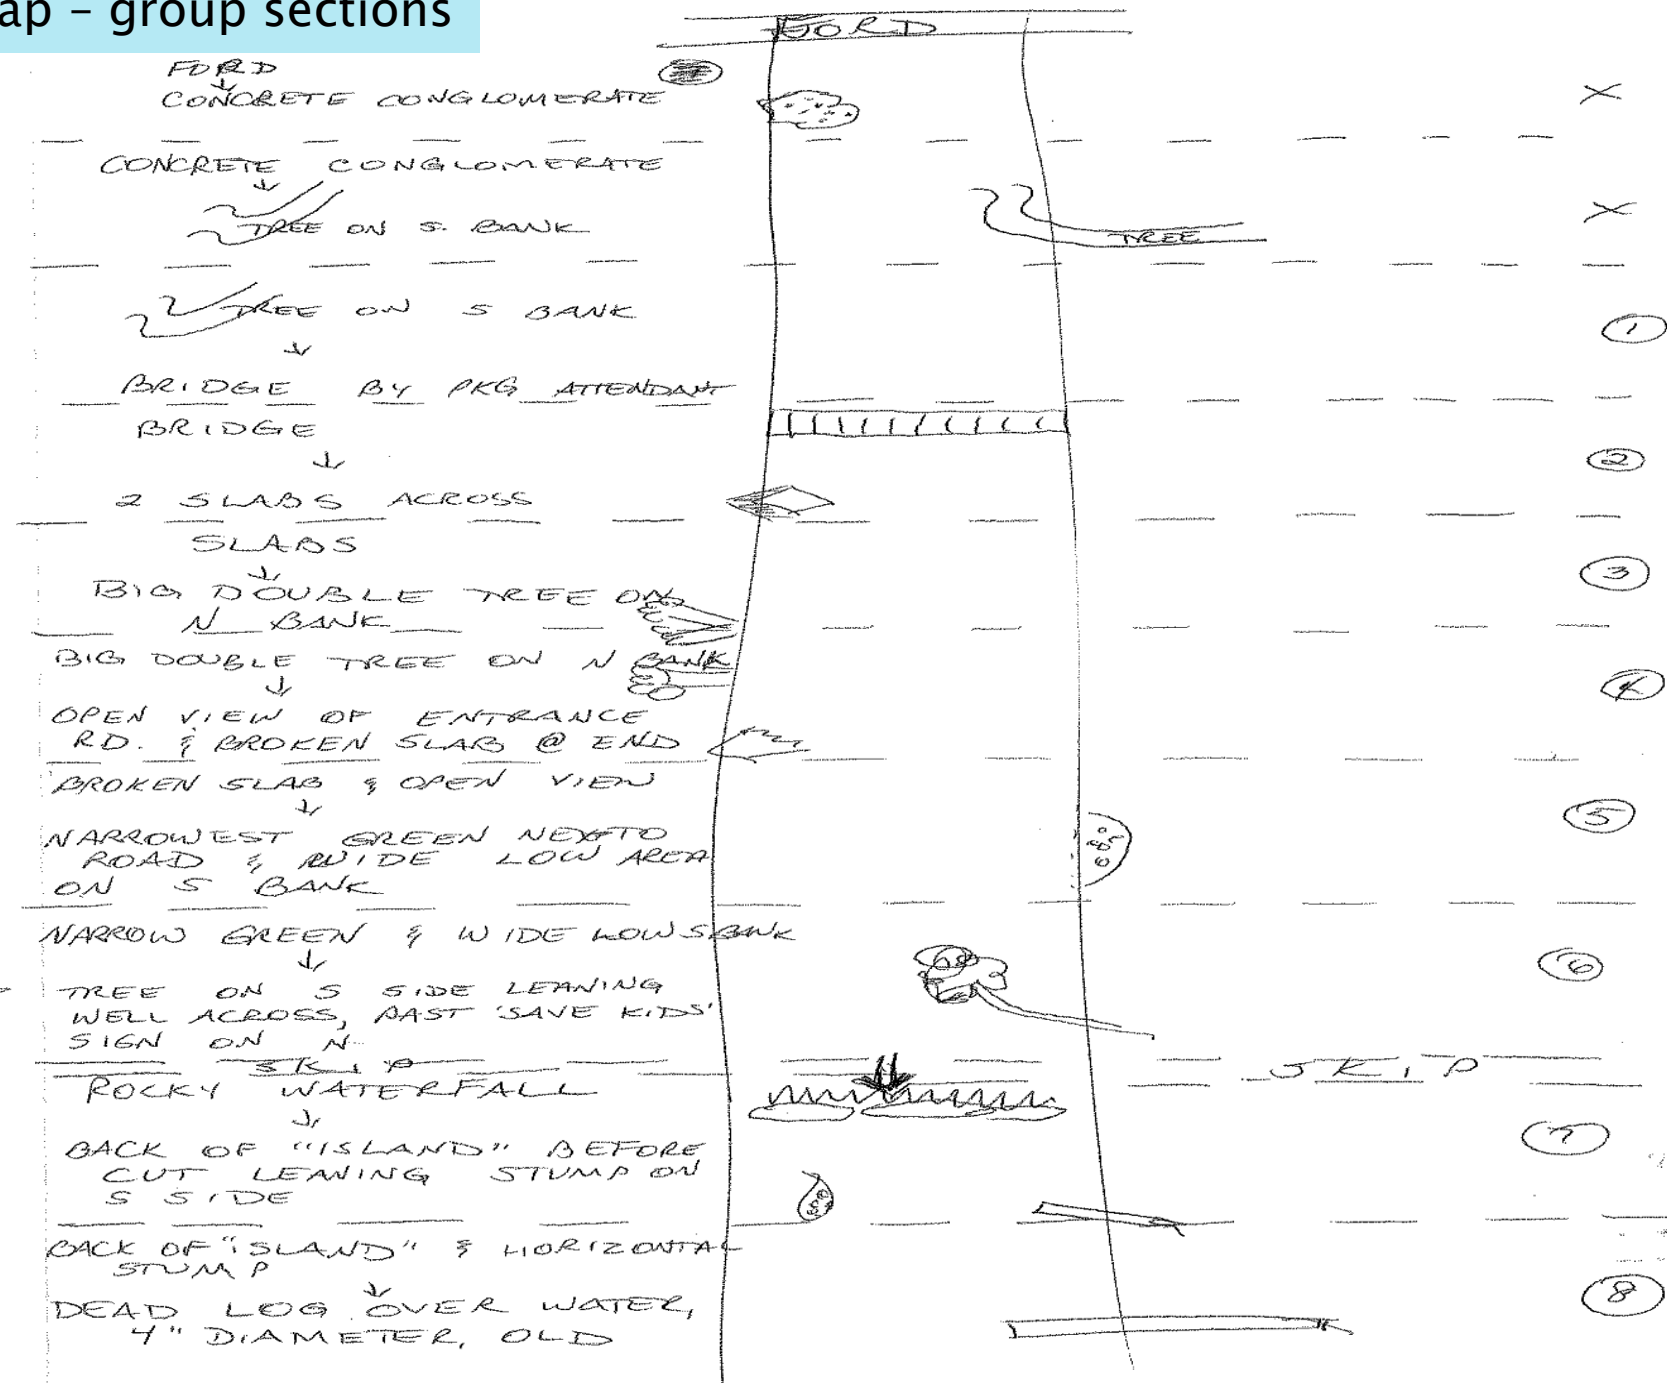 ap – group sections
FORD
FORD
CONCRETE CONGLOMERATE
X
CONCRETE CONGLOMERATE
TREE ON S. BANK
TREE
X
TREE ON S BANK
1
BRIDGE BY PKG ATTENDANT
BRIDGE
2
2 SLABS ACROSS
SLABS
3
BIG DOUBLE TREE ON
N BANK
BIG DOUBLE TREE ON N BANK
4
OPEN VIEW OF ENTRANCE
RD. & BROKEN SLAB @ END
BROKEN SLAB & OPEN VIEW
5
NARROWEST GREEN NEXT TO
ROAD & WIDE LOW AREA
ON S BANK
NARROW GREEN & WIDE LOW S BANK
6
TREE ON S SIDE LEANING
WELL ACROSS, PAST 'SAVE KIDS'
SIGN ON N
SKIP
SKIP
ROCKY WATERFALL
7
BACK OF "ISLAND" BEFORE
CUT LEANING STUMP ON
S SIDE
BACK OF "ISLAND" & HORIZONTAL
STUMP
8
DEAD LOG OVER WATER,
4" DIAMETER, OLD